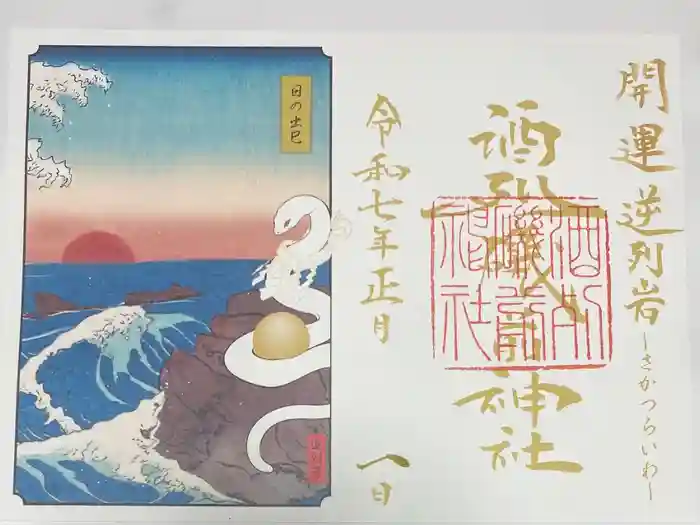 開運 逆列岩 ーさかつらいわー
酒列磯前神社
酒列
磯前
神社
令和七年正月 八日
日の出巳